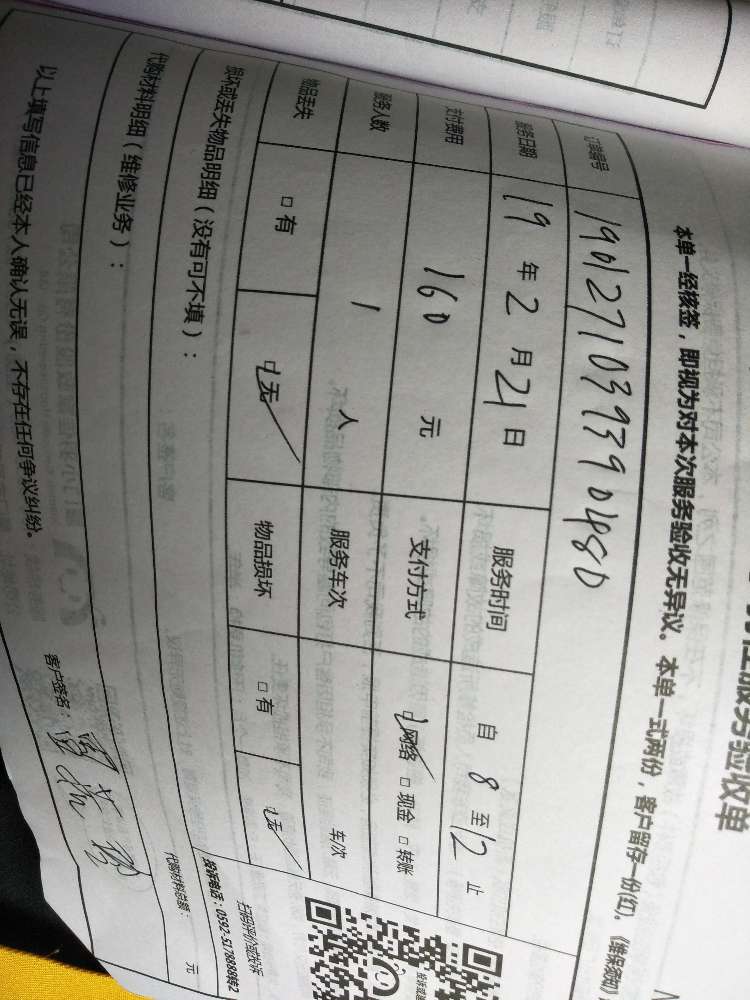 服务验收单
本单一经核签，即视为对本次服务验收无异议。本单一式两份，客户留存一份(红)。
订单编号 190127103939390480
服务日期 19 年 2 月 21 日 服务时间 自 8 至 12 止
支付费用 160 元 支付方式 ☑网络 □现金 □转账
服务人数 1 人 服务车次 车次
物品丢失 □有 ☑无 物品损坏 □有 ☑无
损坏或丢失物品明细（没有可不填）：
代购材料明细（维修业务）：
代购材料总额： 元
以上填写信息已经本人确认无误，不存在任何争议纠纷。
客户签名：
扫码评价或投诉
投诉电话：0592-5178888转2